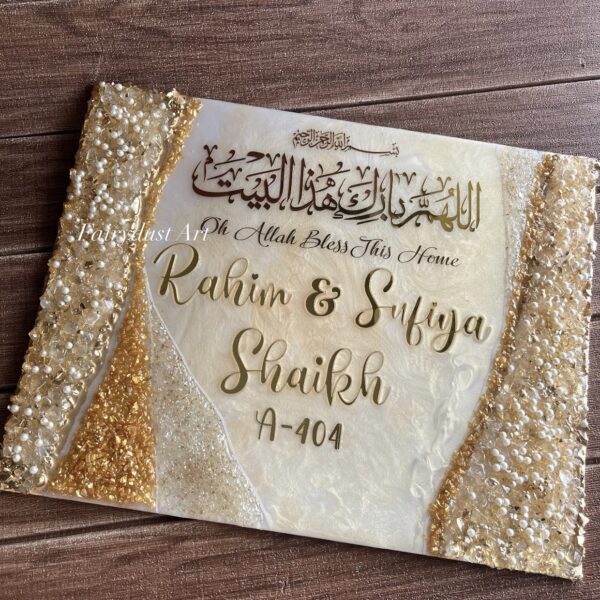 بسم الله الرحمن الرحيم
اللهم بارك هذا البيت
Fairydust Art
Oh Allah Bless This Home
Rahim & Sufiya
Shaikh
A-404